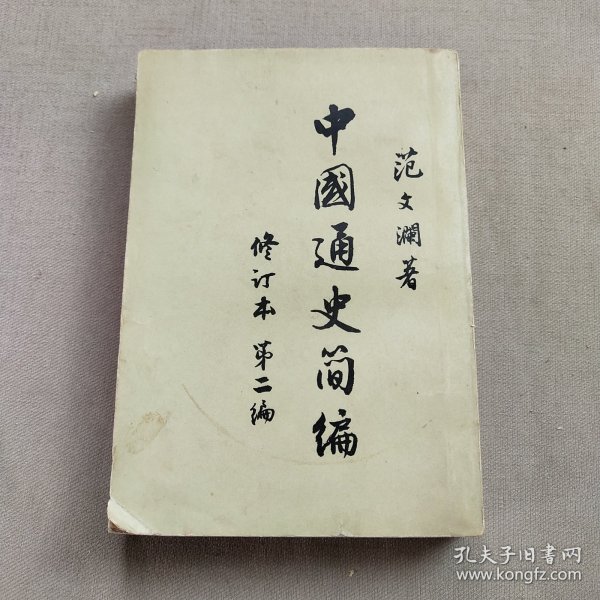 范文瀾著
中國通史简编
修订本 第二编
孔夫子旧书网
www.kongfz.com